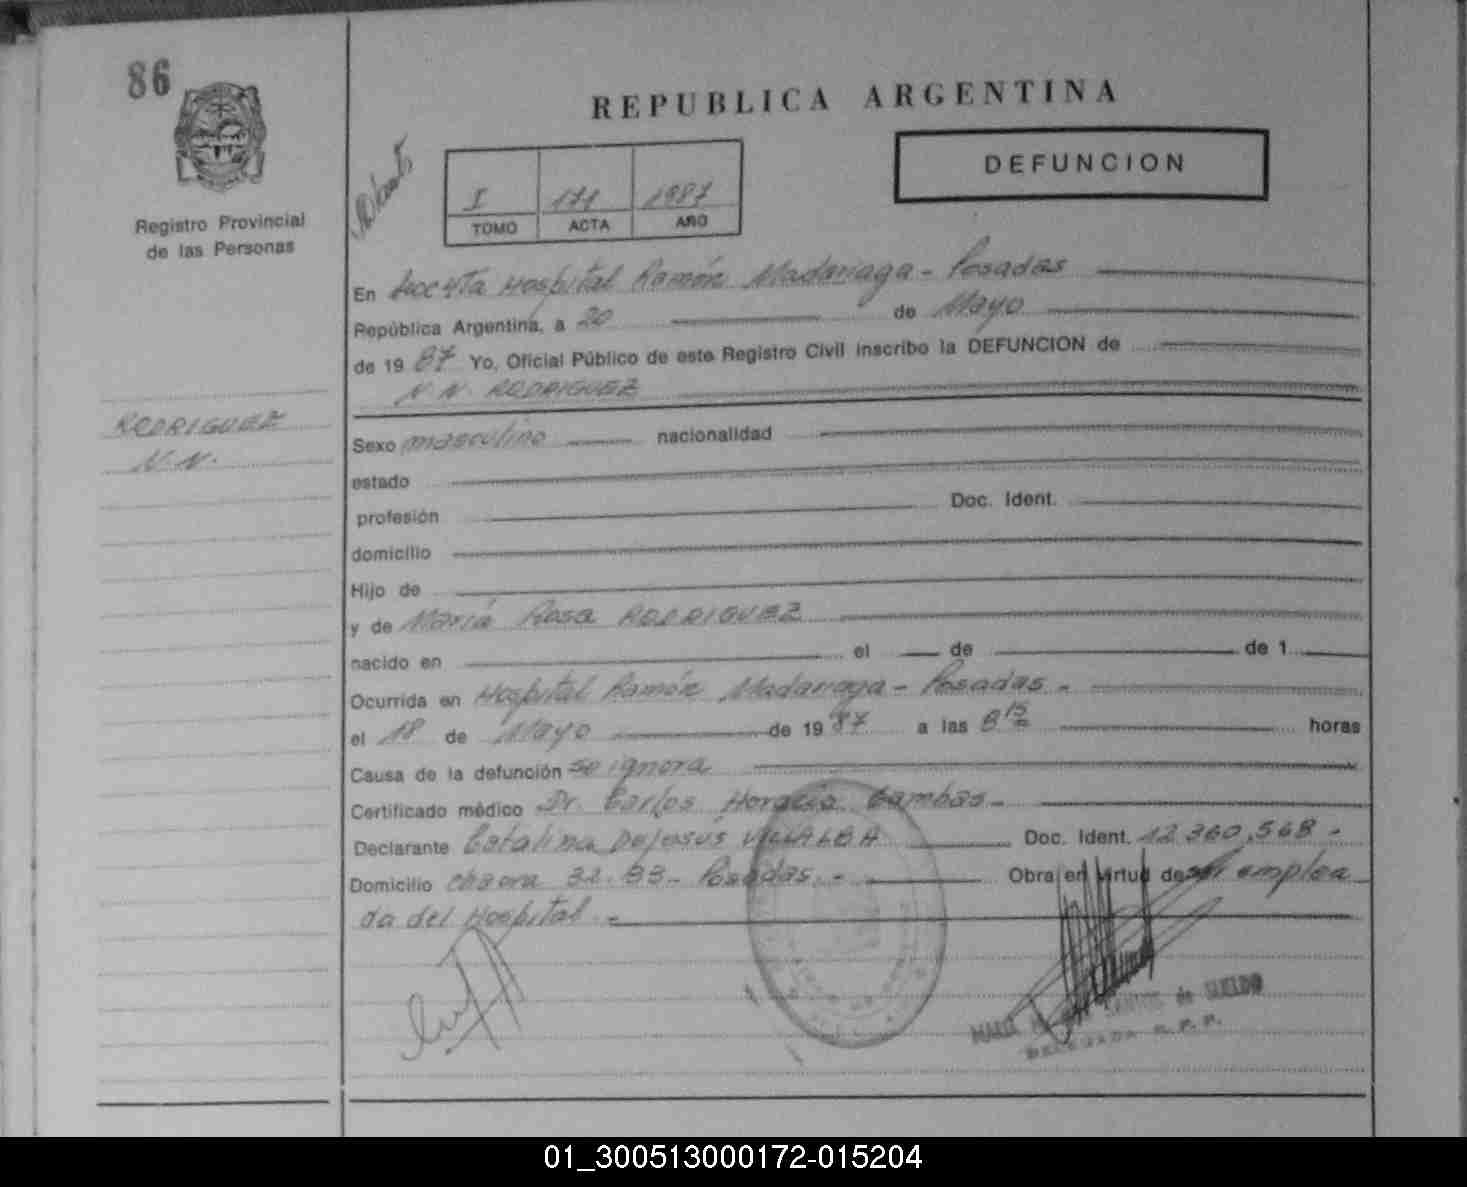 86
REPUBLICA ARGENTINA
DEFUNCION
I 171 1987
TOMO ACTA AÑO
Registro Provincial
de las Personas
En Hospital Ramón Madariaga - Posadas
República Argentina, a 20 de Mayo
de 1987 Yo, Oficial Público de este Registro Civil inscribo la DEFUNCION de
N. N. RODRIGUEZ
RODRIGUEZ
N. N.
Sexo masculino nacionalidad
estado
profesión Doc. Ident.
domicilio
Hijo de
y de María Rosa RODRIGUEZ
nacido en el de de 1
Ocurrida en Hospital Ramón Madariaga - Posadas -
el 18 de Mayo de 1987 a las 8 15 horas
Causa de la defunción se ignora
Certificado médico Dr. Carlos Horacio Cambas -
Declarante Catalina DeJesús VILLALBA Doc. Ident. 12.360.568 -
Domicilio chacra 32-33 - Posadas. - Obra en virtud de ser emplea
da del Hospital. -
SANTOS de SUELDO
DELEGADA R. P. P.
01_300513000172-015204